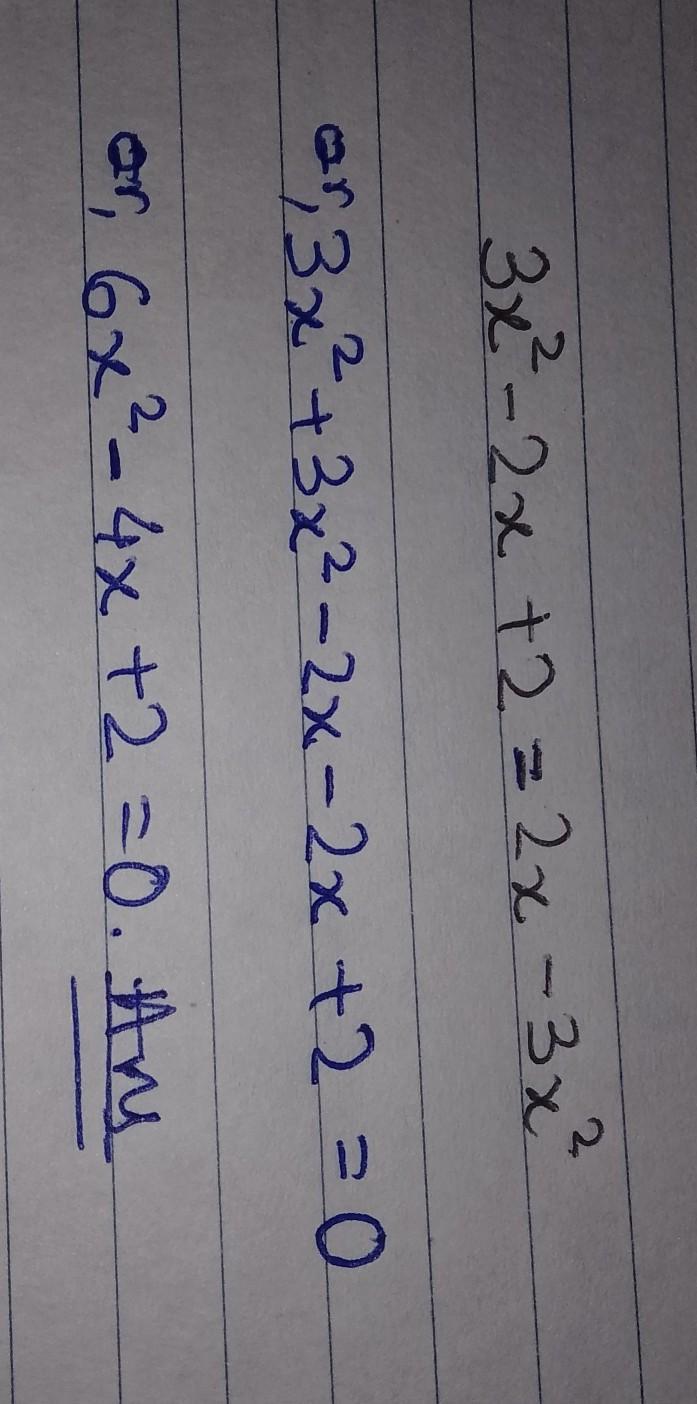 3x² - 2x + 2 = 2x - 3x²
or, 3x² + 3x² - 2x - 2x + 2 = 0
or, 6x² - 4x + 2 = 0. Ans